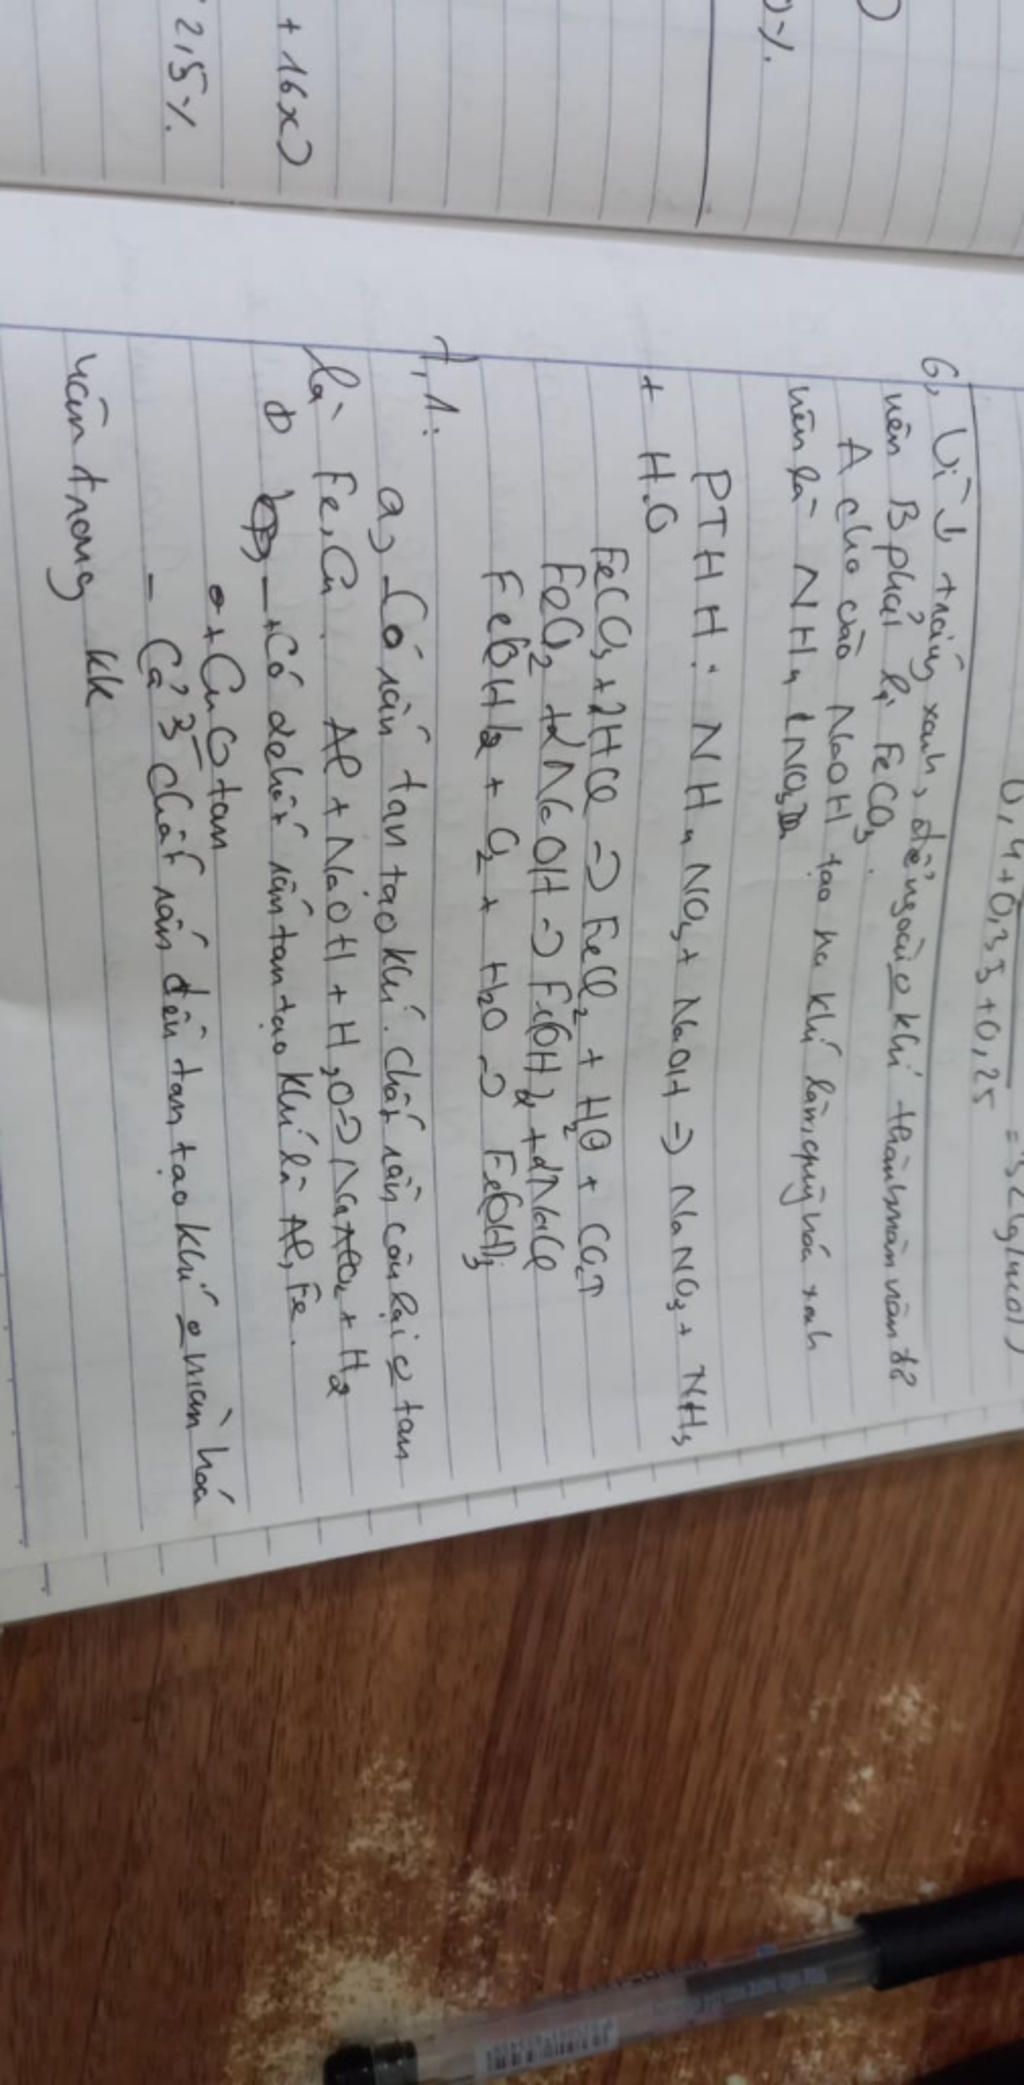 + 16x)
2,5%
0,4+0,33+0,25
6, Vì ↓ trắng xanh, để ngoài o khí thành
nên B phải là FeCO3.
A cho vào NaOH tạo ra khí làm quỳ hoá xanh
nên là NH4NO3
PTHH: NH4NO3 + NaOH → NaNO3 + NH3
+ H2O
FeCO3 + 2HCl → FeCl2 + H2O + CO2↑
FeCl2 + 2NaOH → Fe(OH)2 + 2NaCl
Fe(OH)2 + O2 + H2O → Fe(OH)3
7, 1:
a, - Có rắn tan tạo khí. Chất rắn còn lại o tan
là Fe, Cu. Al + NaOH + H2O → NaAlO2 + H2
b, - + Có 2 chất rắn tan tạo khí là Al, Fe.
+ Cu O tan
- Cả 3 chất rắn đều tan tạo khí o màu hoá
nâu trong kk